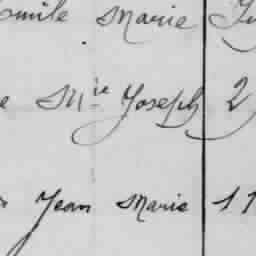 Marie
Mie Joseph 2
Jean Marie 1